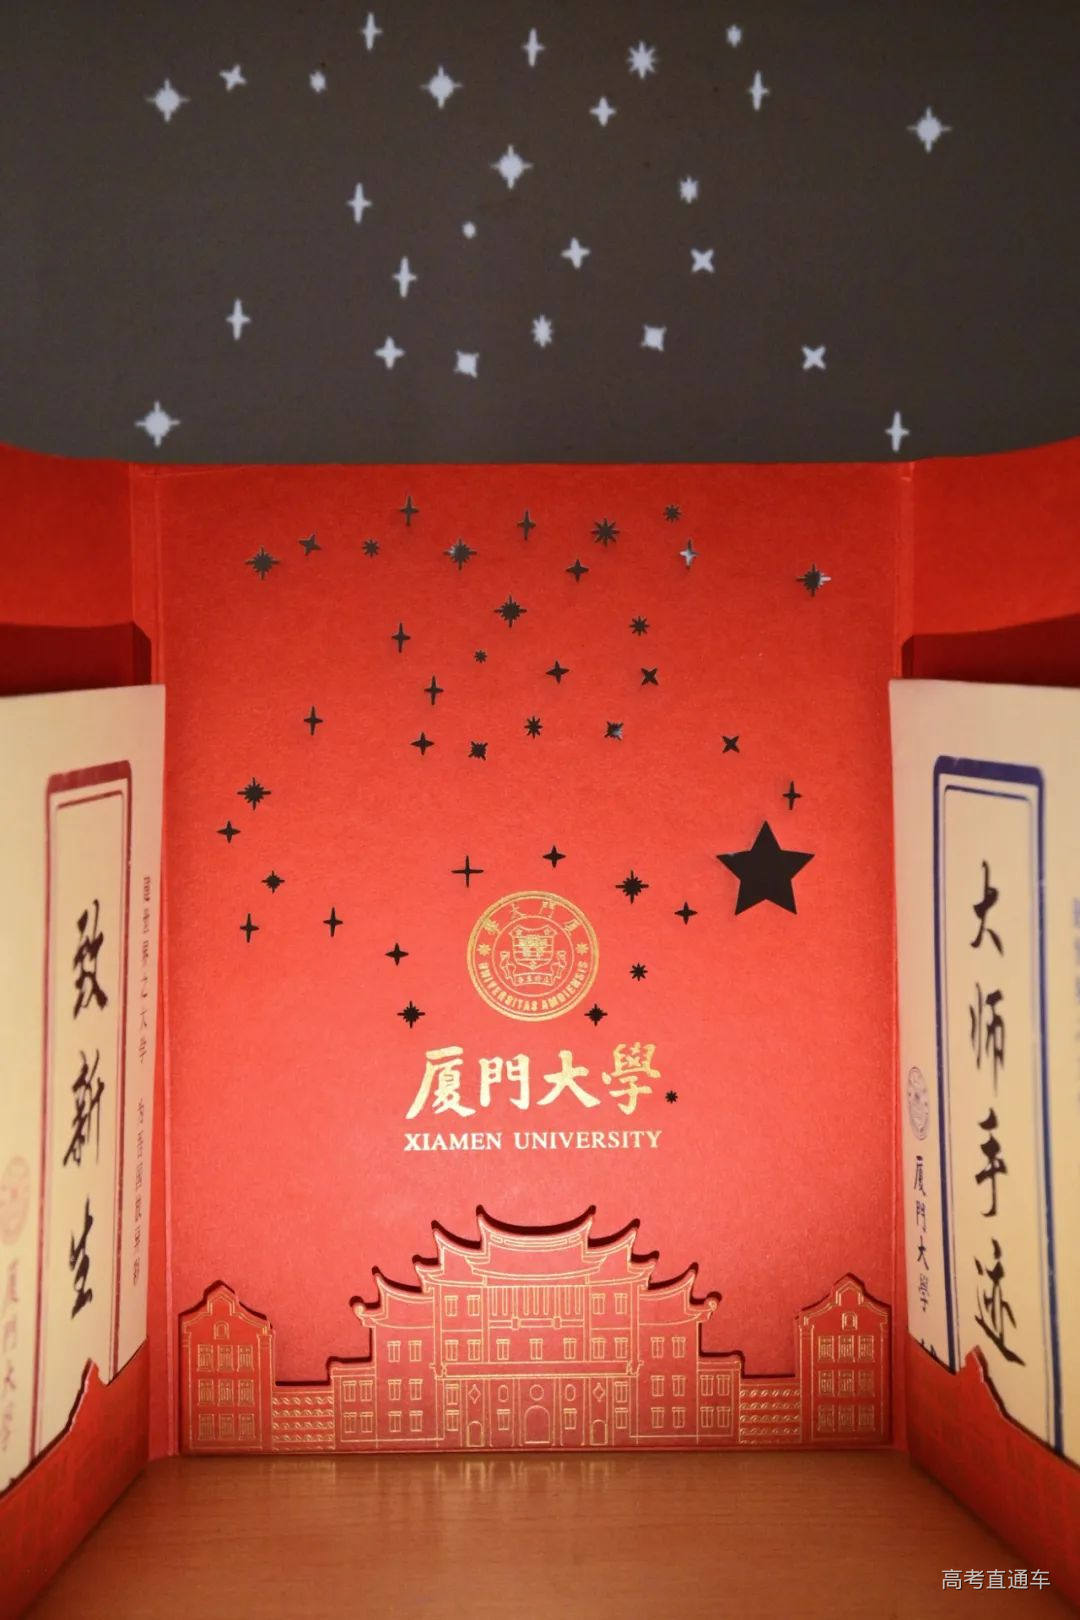 致新生
廈門大學
UNIVERSITAS AMOIENSIS
廈門大學
XIAMEN UNIVERSITY
大师手迹
廈門大學
高考直通车